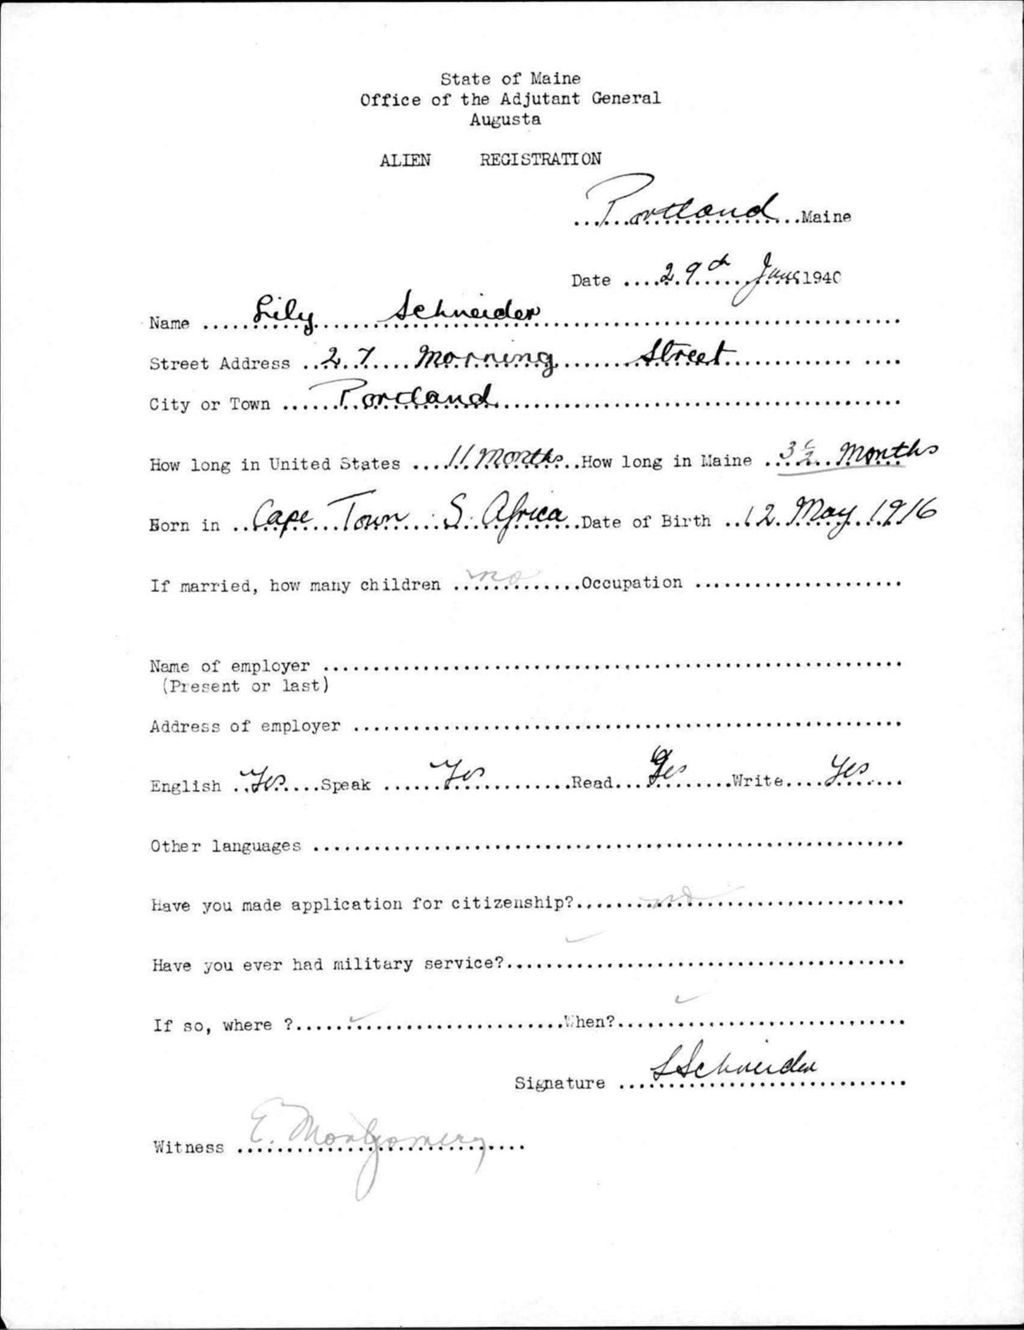 State of Maine
Office of the Adjutant General
Augusta
ALIEN REGISTRATION
Portland Maine
Date 29th June 1940
Name Lily Schneider
Street Address 27 Morning Street
City or Town Portland
How long in United States 11 Months How long in Maine Months
Born in Cape Town S. Africa Date of Birth 12 May 1916
If married, how many children no Occupation
Name of employer
(Present or last)
Address of employer
English Yes Speak Yes Read Yes Write Yes
Other languages
Have you made application for citizenship? no
Have you ever had military service?
If so, where ? When?
Signature L Schneider
Witness E. Montgomery